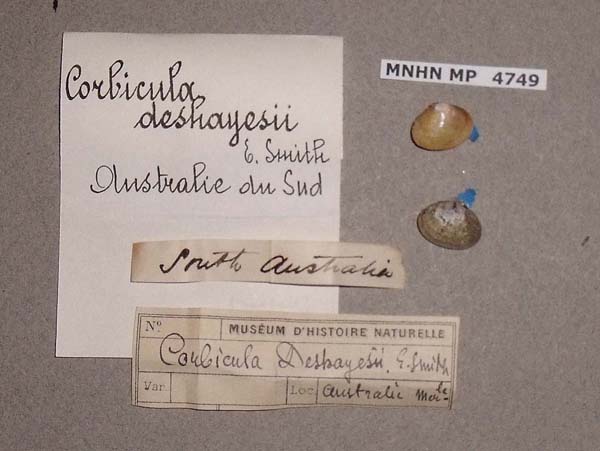 Corbicula
deshayesii
E. Smith
Australie du Sud
MNHN MP 4749
South Australia
N° MUSÉUM D'HISTOIRE NATURELLE
Corbicula Deshayesii, E. Smith
Var. Loc. Australie Mérle